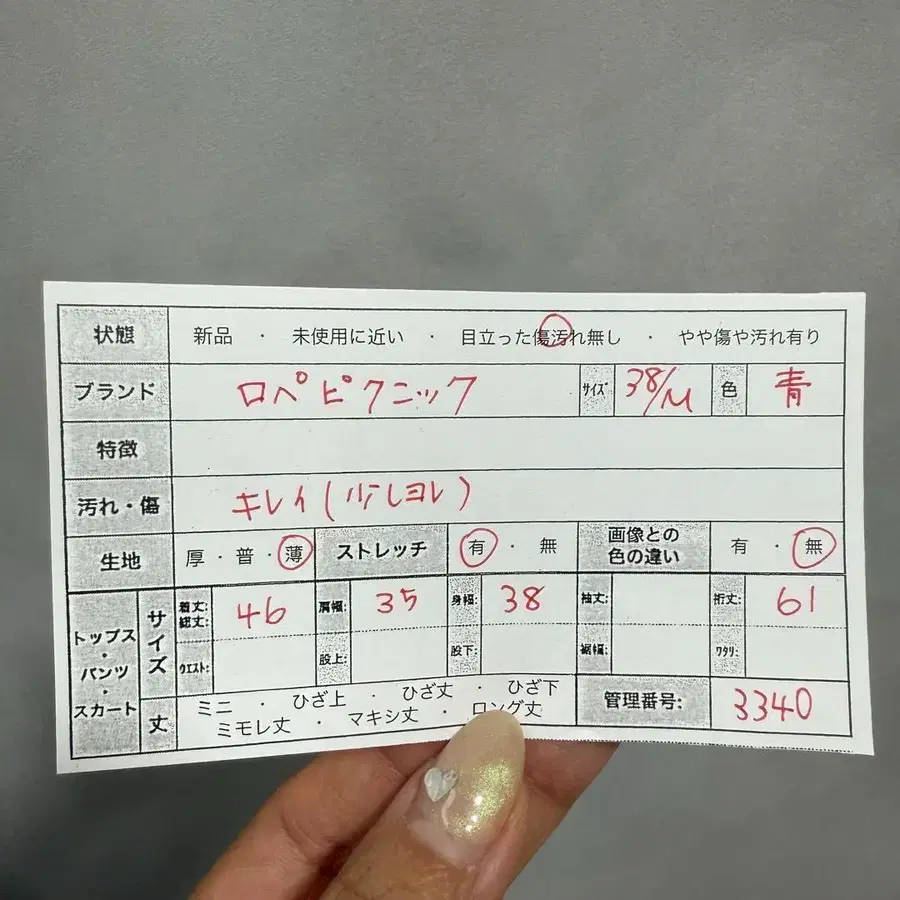 状態 新品 ・ 未使用に近い ・ 目立った傷汚れ無し ・ やや傷や汚れ有り
ブランド ロペピクニック サイズ 38/M 色 青
特徴
汚れ・傷 キレイ(少しヨレ)
生地 厚・普・薄 ストレッチ 有・無 画像との色の違い 有・無
トップス・パンツ・スカート サイズ 着丈:総丈: 46 肩幅: 35 身幅: 38 袖丈: 裄丈: 61
ウエスト: 股上: 股下: 裾幅: ワタリ:
丈 ミニ ・ ひざ上 ・ ひざ丈 ・ ひざ下
ミモレ丈 ・ マキシ丈 ・ ロング丈
管理番号: 3340